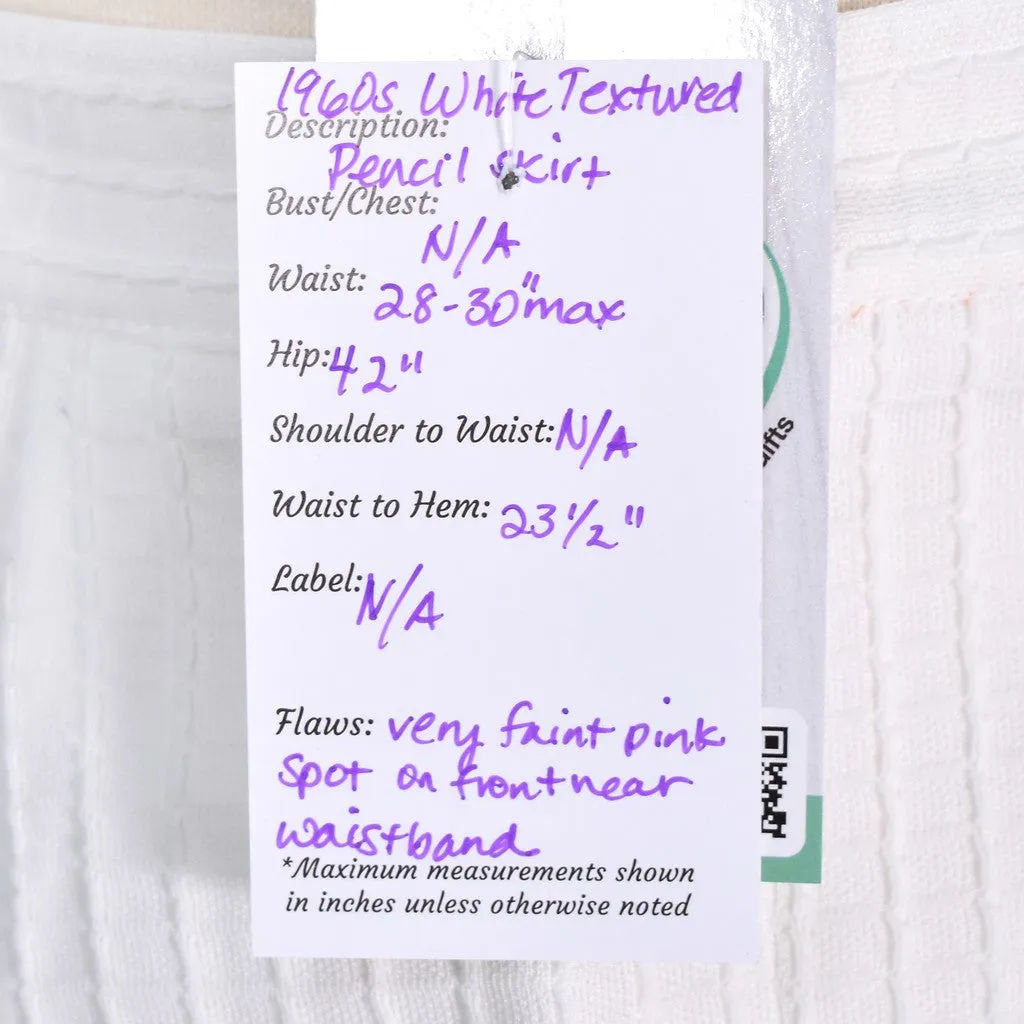 1960s White Textured
Description:
Pencil skirt
Bust/Chest:
N/A
Waist: 28-30" max
Hip: 42"
Shoulder to Waist: N/A
Waist to Hem: 23 1/2"
Label: N/A
Flaws: very faint pink
spot on front near
waistband
*Maximum measurements shown
in inches unless otherwise noted